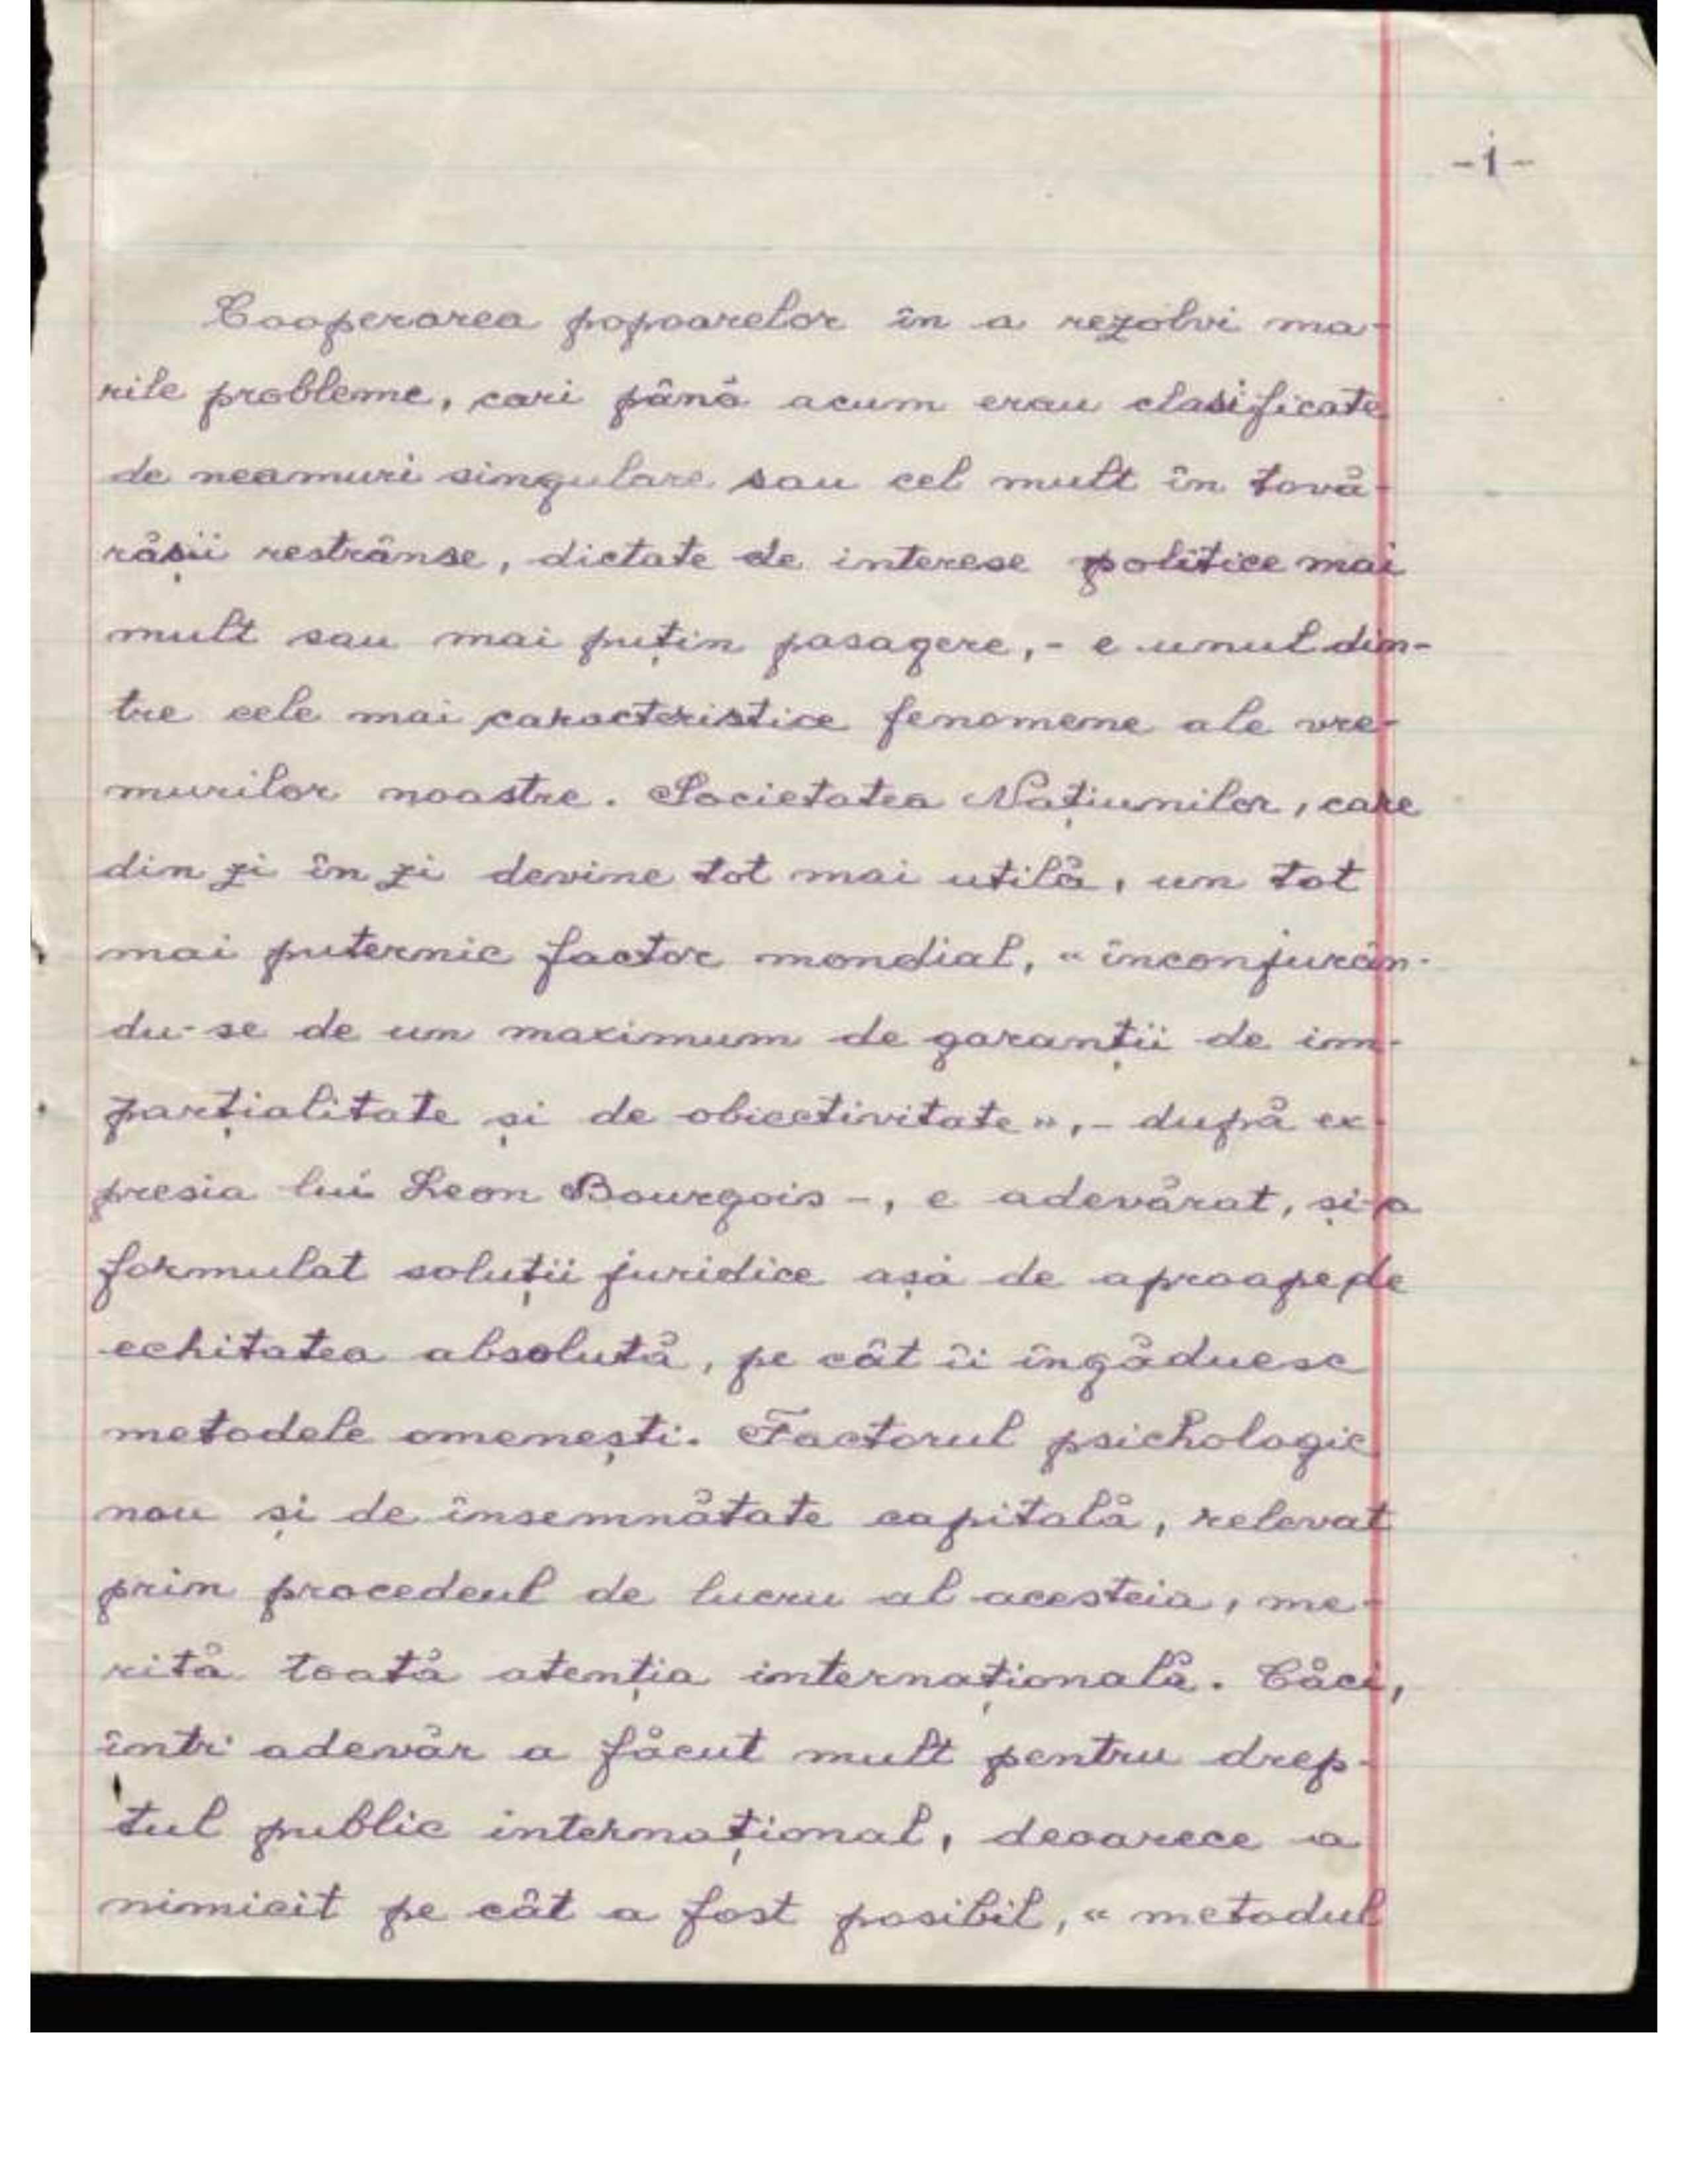 -1-
Cooperarea popoarelor în a rezolvi ma-
rile probleme, cari până acum erau clasificate
de neamuri singulare sau cel mult în tovă-
rășii restrânse, dictate de interese politice mai
mult sau mai puțin pasagere,- e unul din-
tre cele mai caracteristice fenomene ale vre-
murilor noastre. Societatea Națiunilor, care
din zi în zi devine tot mai utilă, un tot
mai puternic factor mondial, «înconjurân-
du-se de un maximum de garanții de im-
parțialitate și de obiectivitate»,- după ex-
presia lui Leon Bourgois -, e adevărat, și-a
formulat soluții juridice așa de aproape de
echitatea absolută, pe cât îi îngăduesc
metodele omenești. Factorul psichologic
nou și de însemnătate capitală, relevat
prin procedeul de lucru al acesteia, me-
rită toată atenția internațională. Căci,
într'adevăr a făcut mult pentru drep-
tul public internațional, deoarece a
nimicit pe cât a fost posibil, «metodul